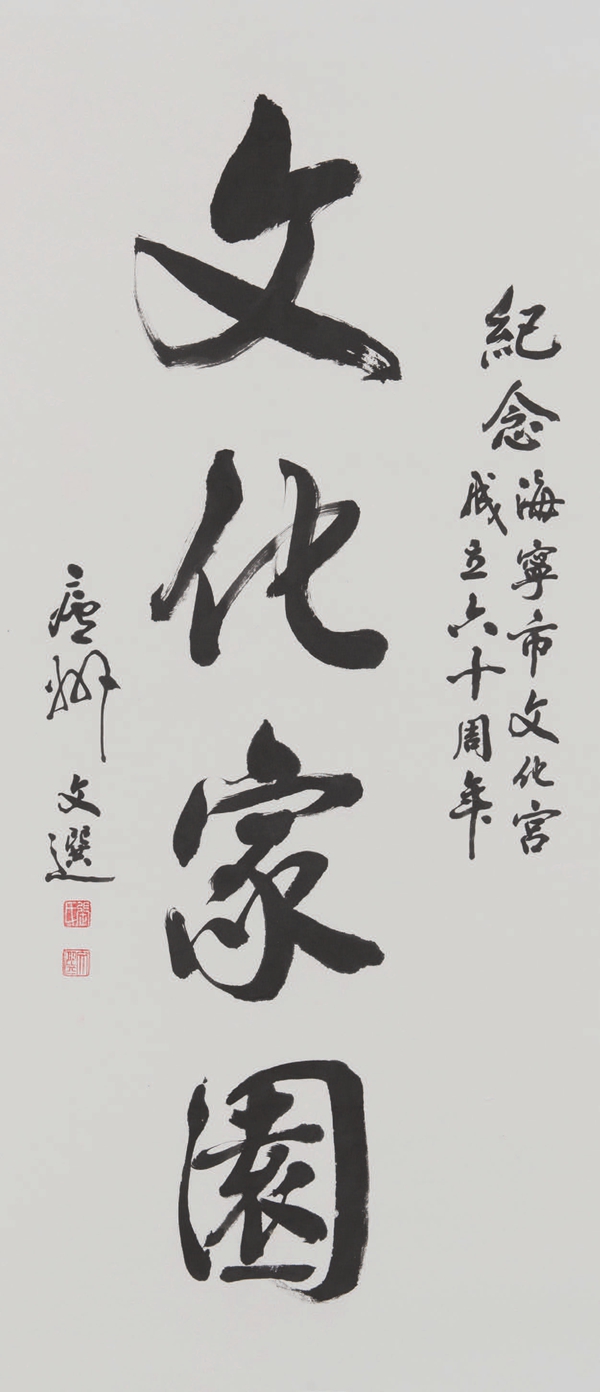 紀念
海寧市文化宮
成立六十周年
文化家園
文選